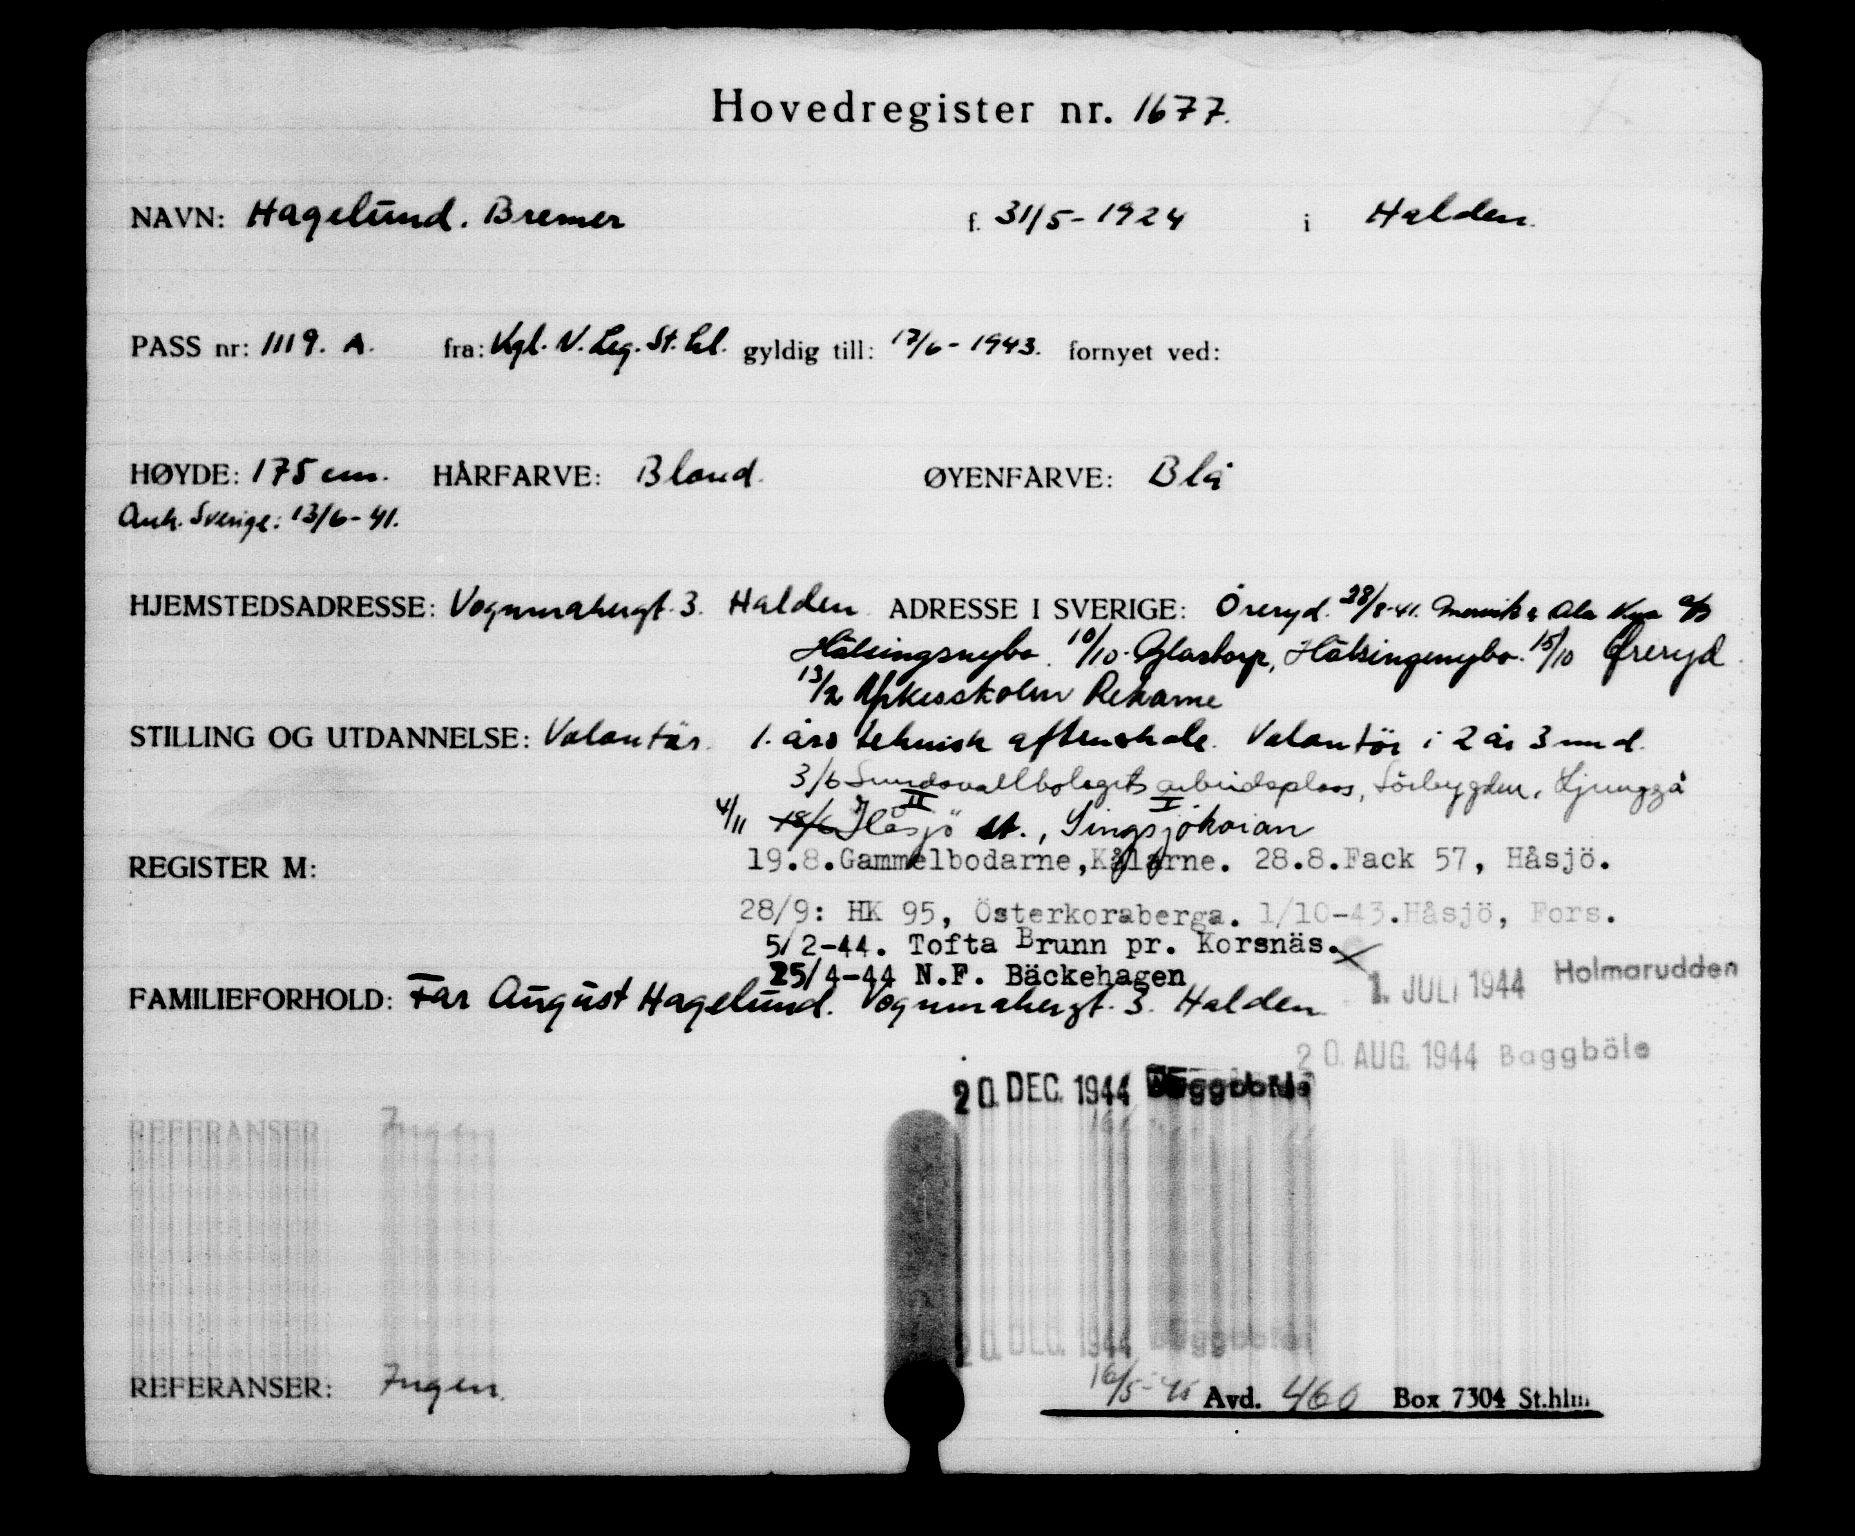 Hovedregister nr. 1677.
NAVN: Hagelund. Bremer f. 31/5-1924 i Halden.
PASS nr: 1119. A. fra: Kgl. N. Leg. St.hl. gyldig till: 17/6-1943. fornyet ved:
HØYDE: 175 cm. HÅRFARVE: Blond. ØYENFARVE: Blå
Ank. Sverige: 13/6-41.
HJEMSTEDSADRESSE: Vognmakergt. 3. Halden ADRESSE I SVERIGE: Öreryd. 28/8-41.
Hälsingenybo. 10/10. Glastorp, Hälsingenybo. 15/10 Öreryd.
13/2 Yrkesskolen Rekarne
STILLING OG UTDANNELSE: Volontör. 1. års teknisk aftenskole. Volontör i 2 år 3 mnd.
3/6 Sundsvallbolagets arbeidsplass, Sörbygden, Ljunggå
4/11 18/6 Håsjö II st., Singsjökoian I
REGISTER M: 19.8.Gammelbodarne,Kälarne. 28.8.Fack 57, Håsjö.
28/9: HK 95, Österkoraberga. 1/10-43.Håsjö, Fors.
5/2-44. Tofta Brunn pr. Korsnäs.
25/4-44 N.F. Bäckehagen
1. JULI 1944 Holmarudden
FAMILIEFORHOLD: Far August Hagelund. Vognmakergt. 3. Halden
20. AUG. 1944 Baggböle
20. DEC. 1944 Baggböle
REFERANSER: Ingen
20 DEC. 1944 Baggböle
REFERANSER: Ingen.
16/5-45 Avd. 460 Box 7304 St.hlm